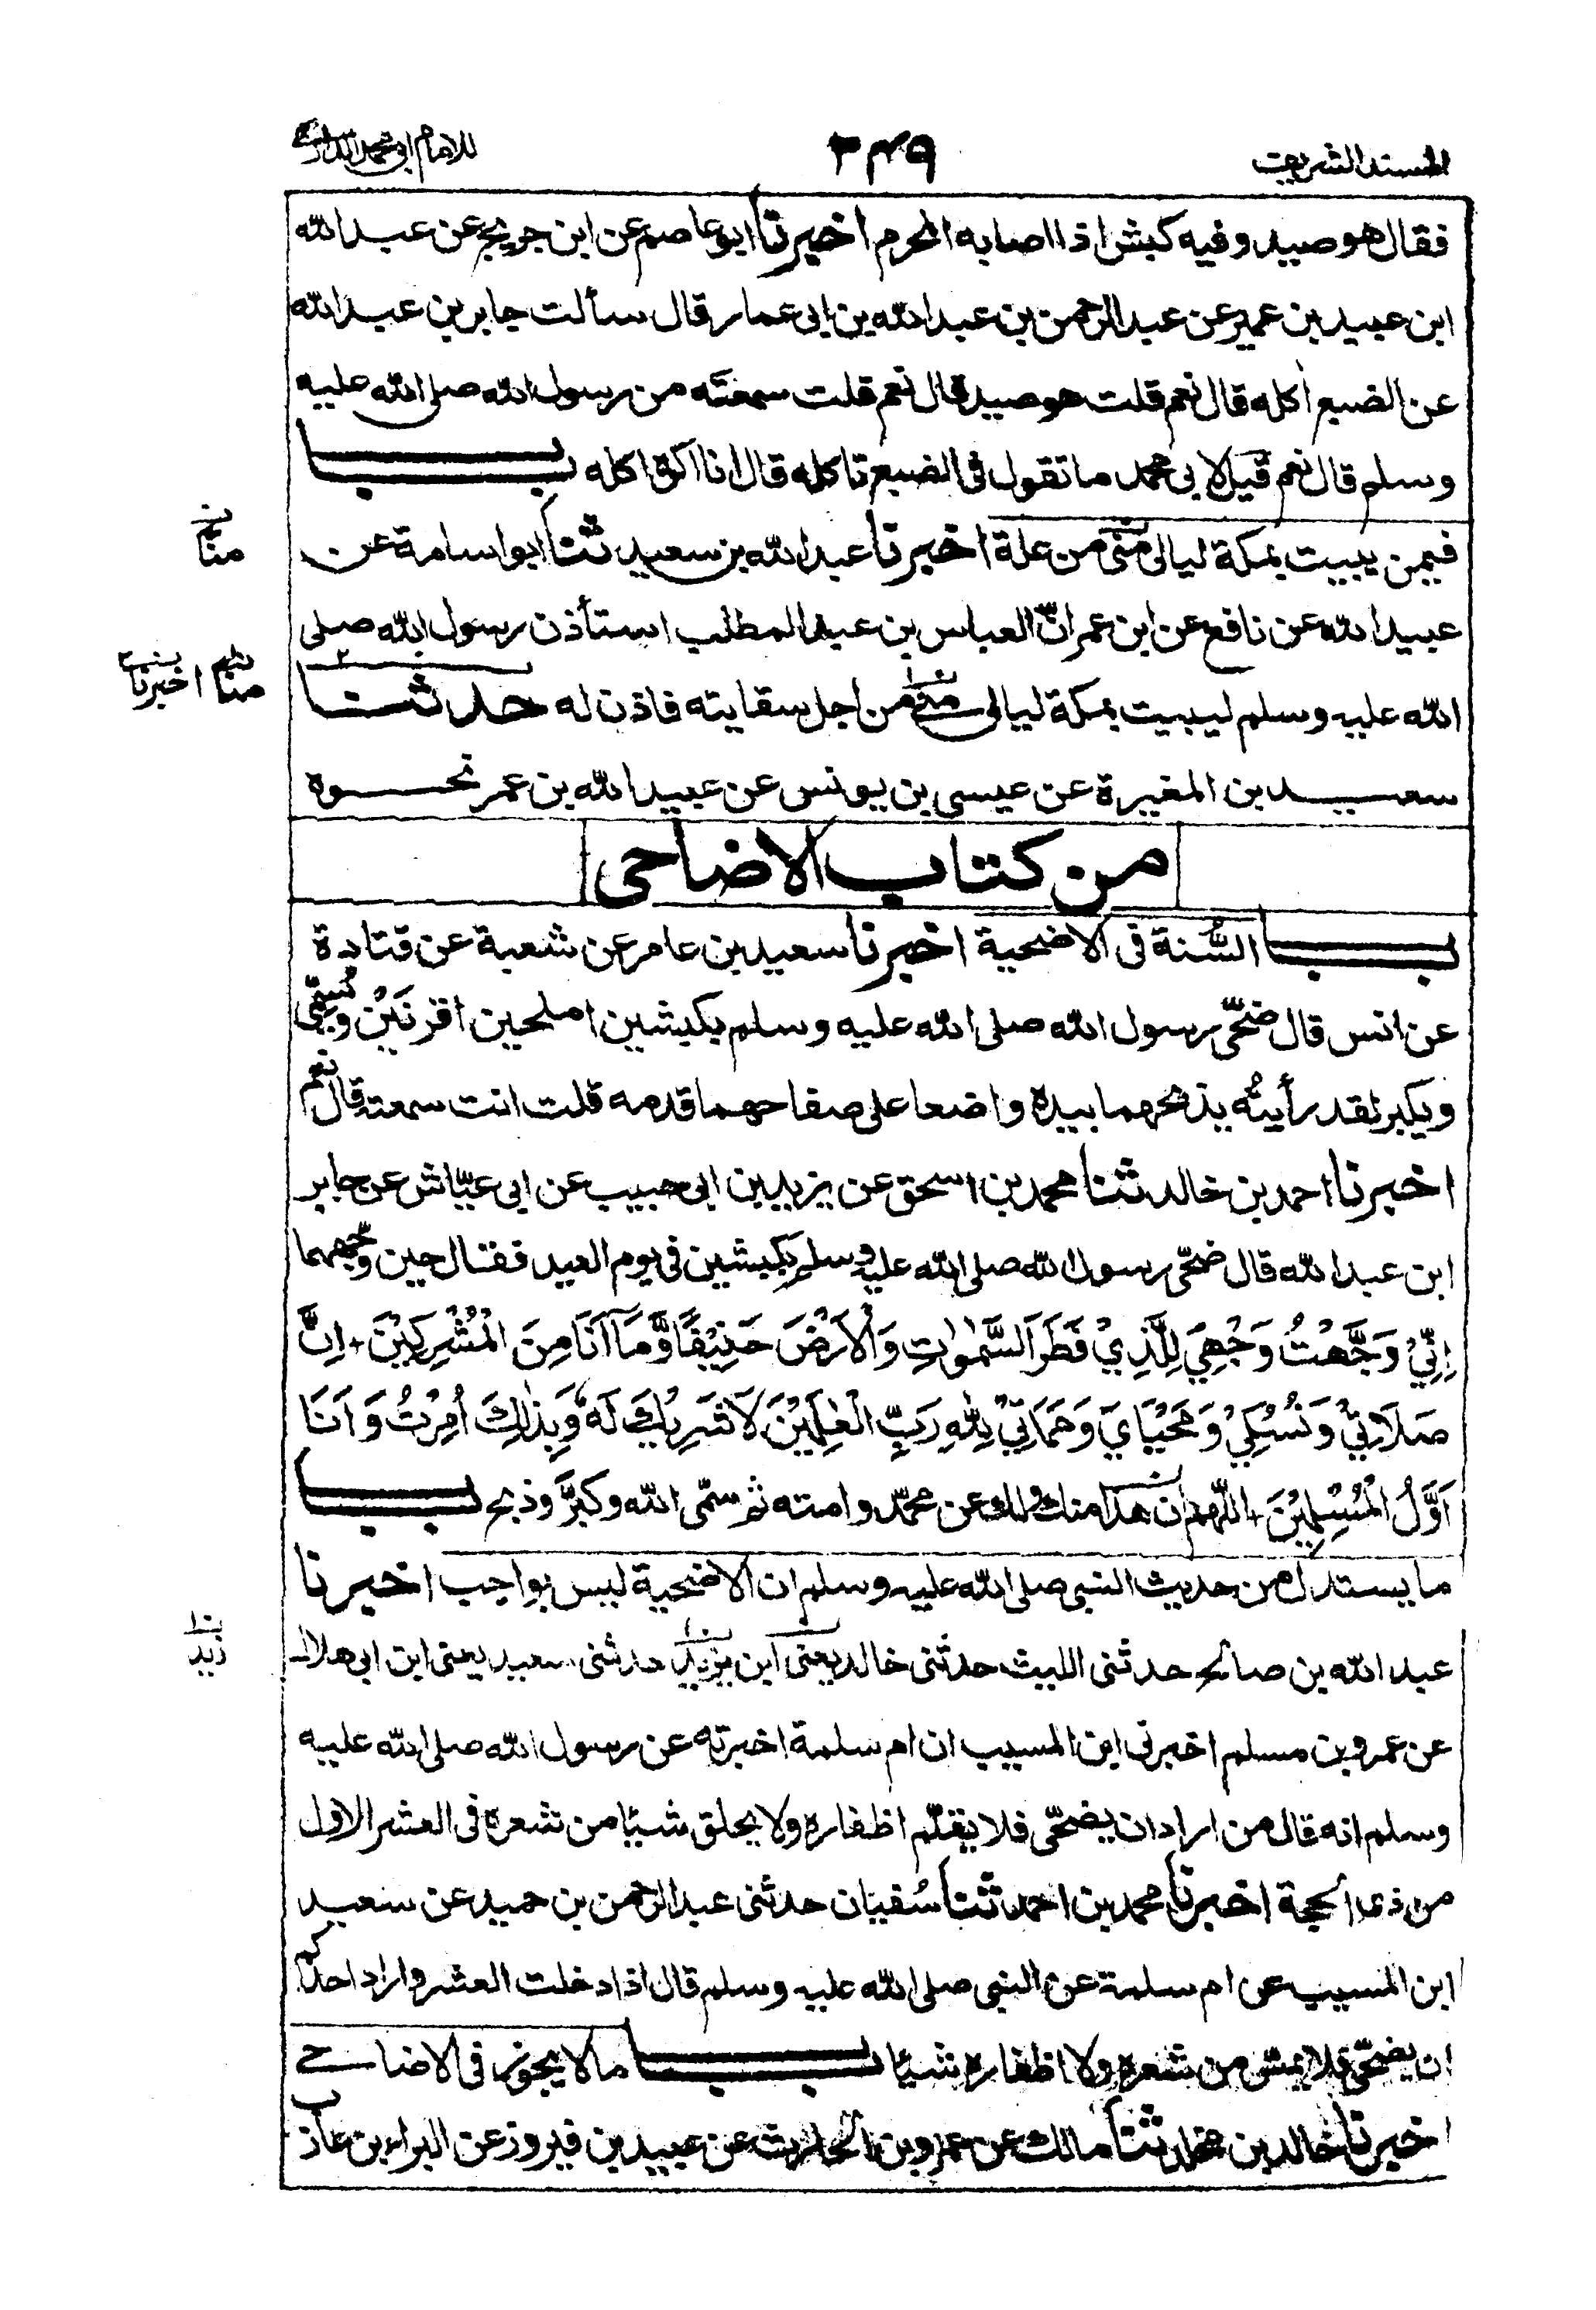 المسند الشريف
٢٤٩
للامام ابى محمد الدارمى
فقال هو صيد وفيه كبش اذا اصابه المحرم اخبرنا ابو عاصم عن ابن جريج عن عبد الله
ابن عبيد بن عمير عن عبد الرحمن بن عبد الله بن ابى عمار قال سألت جابر بن عبد الله
عن الضبع اكله قال نعم قلت هو صيد قال نعم قلت سمعته من رسول الله صلى الله عليه
وسلم قال نعم قيل لابى محمد ما تقول فى الضبع تاكله قال انا اكره اكله بــــاب
فيمن يبيت بمكة ليالى منى من علة اخبرنا عبد الله بن سعيد ثنا ابو اسامة عن
عبيد الله عن نافع عن ابن عمر انّ العباس بن عبد المطلب استأذن رسول الله صلى
الله عليه وسلم ليبيت بمكة ليالى منى من اجل سقايته فاذن له حدثنا
سعيد بن المغيرة عن عيسى بن يونس عن عبيد الله بن عمر نحوه
من كتاب الاضاحى
بــــاب السُّنة فى الاضحية اخبرنا سعيد بن عامر عن شعبة عن قتادة
عن انس قال ضحّى رسول الله صلى الله عليه وسلم بكبشين املحين اقرنَيْن ويُسمّى
ويكبر لقد رأيتُه يذبحهما بيده واضعا على صفاحهما قدمه قلت انت سمعته قال نعم
اخبرنا احمد بن خالد ثنا محمد بن اسحق عن يزيد بن ابى حبيب عن ابى عيّاش عن جابر
ابن عبد الله قال ضحّى رسول الله صلى الله عليه وسلم بكبشين فى يوم العيد فقال حين وجّههما
اِنِّيْ وَجَّهْتُ وَجْهِيَ لِلَّذِيْ فَطَرَ السَّمٰوٰتِ وَالْاَرْضَ حَنِيْفًا وَّمَآ اَنَا مِنَ الْمُشْرِكِيْنَ + اِنَّ
صَلَاتِيْ وَنُسُكِيْ وَمَحْيَايَ وَمَمَاتِيْ لِلّٰهِ رَبِّ الْعٰلَمِيْنَ لَا شَرِيْكَ لَهٗ وَبِذٰلِكَ اُمِرْتُ وَاَنَا
اَوَّلُ الْمُسْلِمِيْنَ + اللّٰهم ان هذا منك ولك عن محمّد وامته ثم سمّى الله وكبَّر وذبح بــــاب
ما يستدل من حديث النبى صلى الله عليه وسلم ان الاضحية ليس بواجب اخبرنا
عبد الله بن صالح حدثنى الليث حدثنى خالد يعنى ابن يزيد حدثنى سعيد يعنى ابن ابى هلال
عن عمرو بن مسلم اخبرنى ابن المسيب ان ام سلمة اخبرته عن رسول الله صلى الله عليه
وسلم انه قال من اراد ان يضحّى فلا يقلّم اظفاره ولا يحلق شيئا من شعره فى العشر الاول
من ذى الحجة اخبرنا محمد بن احمد ثنا سُفيان حدثنى عبد الرحمن بن حميد عن سعيد
ابن المسيب عن ام سلمة عن النبى صلى الله عليه وسلم قال اذا دخلت العشر واراد احدكم
ان يضحّى فلا يمسّ من شعره ولا اظفاره شيئا بــــاب ما لا يجوز فى الاضاحى
اخبرنا خالد بن مخلد ثنا مالك عن عمرو بن الحارث عن عبيد بن فيروز عن البراء بن عازب
منًا
منا اخبرنا
زيد